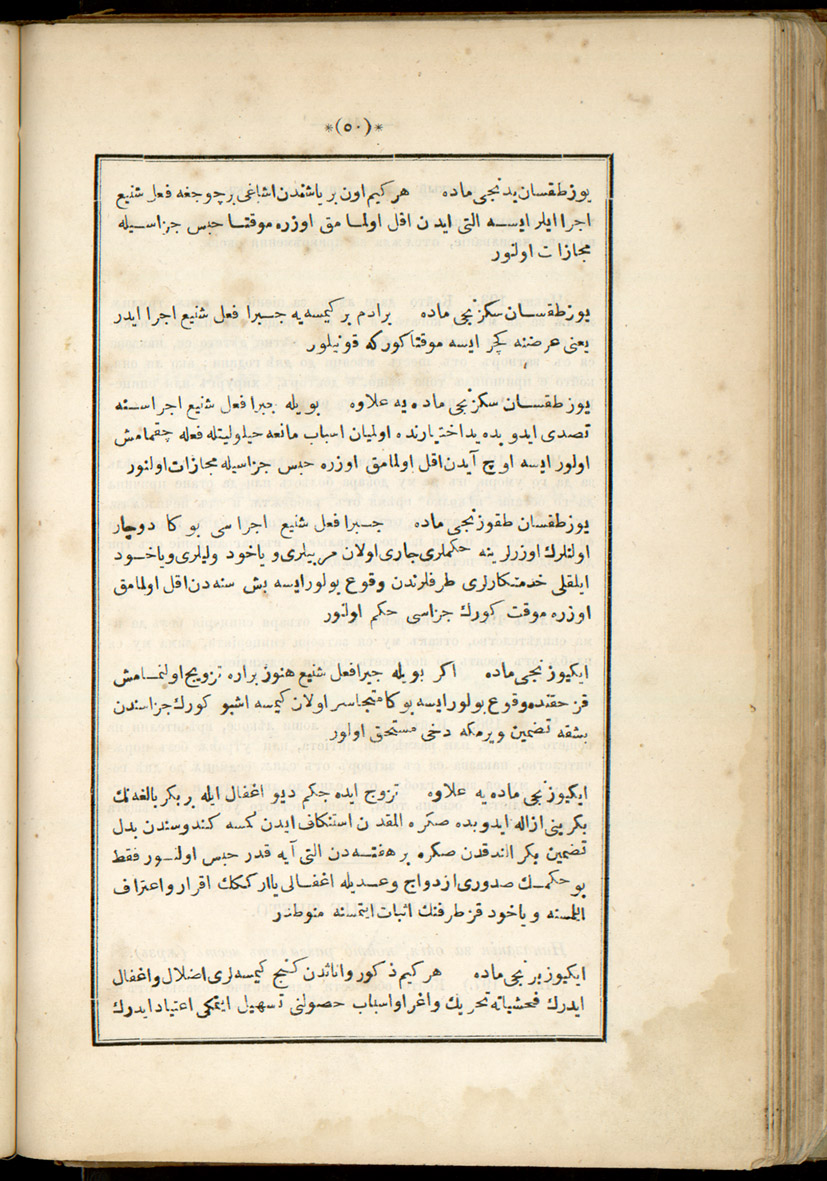 *(٥٠)*
يوز طقسان يدنجى ماده هركيم اون بر ياشندن اشاغى بر چوجغه فعل شنيع
اجرا ايلر ايسه التى ايدن اقل اولمامق اوزره موقتا حبس جزاسيله
مجازات اولنور
يوز طقسان سكزنجى ماده برادم بر كيمسه يه جبرا فعل شنيع اجرا ايدر
يعنى عرضنه كچر ايسه موقتا كوركه قونيلور
يوز طقسان سكزنجى ماده يه علاوه بويله جبرا فعل شنيع اجراسنه
تصدى ايدوبده يد اختيارنده اولميان اسباب مانعه حيلولتيله فعله چقمامش
اولور ايسه اوچ آيدن اقل اولمامق اوزره حبس جزاسيله مجازات اولنور
يوز طقسان طقوزنجى ماده جبرا فعل شنيع اجراسى بوكا دوچار
اولنلرك اوزرلرينه حكملرى جارى اولان مربيلرى و ياخود وليلرى و ياخود
ايلقلى خدمتكارلرى طرفلرندن وقوع بولور ايسه بش سنه دن اقل اولمامق
اوزره موقت كورك جزاسى حكم اولنور
ايكيوزنجى ماده اكر بويله جبرا فعل شنيع هنوز براره تزويج اولنمامش
قز حقنده وقوع بولور ايسه بوكا متجاسر اولان كيمسه اشبو كورك جزاسندن
بشقه تضمين ويرمكه دخى مستحق اولور
ايكيوزنجى ماده يه علاوه تزوج ايده جكم ديو اغفال ايله بر بكر بالغه نك
بكرينى ازاله ايدوبده صكره المقدن استنكاف ايدن كمسه كندوسندن بدل
تضمين بكر الندقدن صكره بر هفته دن التى آيه قدر حبس اولنور فقط
بو حكمك صدورى ازدواج وعديله اغفالى يا ارككك اقرار و اعتراف
ايتمسنه و ياخود قز طرفنك اثبات ايتمسنه منوطدر
ايكيوز برنجى ماده هركيم ذكور و اناثدن كنج كيمسه لرى اضلال و اغفال
ايدرك فحشياته تحريك و اغرا و اسباب حصولنى تسهيل ايتمكى اعتياد ايدرك